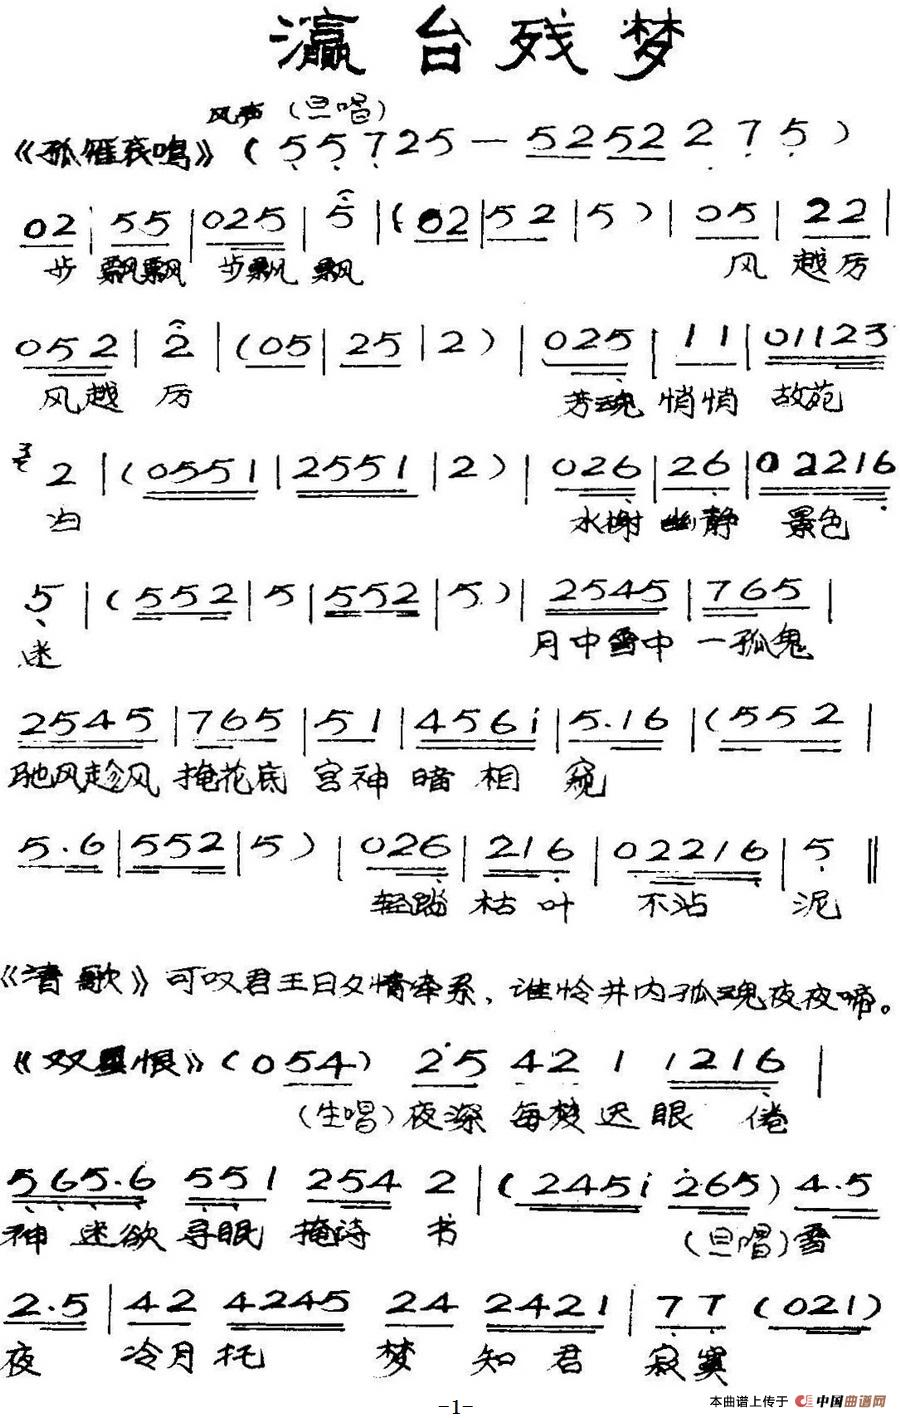 瀛台残梦
风声 (旦唱)
《孤雁哀鸣》( 5 5 7 2 5 — 5 2 5 2 2 7 5 )
0 2 | 5 5 | 0 2 5 | 5 | ( 0 2 | 5 2 | 5 ) | 0 5 | 2 2 |
步 飘飘 步飘 飘 风 越厉
0 5 2 | 2 | ( 0 5 | 2 5 | 2 ) | 0 2 5 | 1 1 | 0 1 1 2 3
风越 厉 芳魂 悄悄 故苑
2 | ( 0 5 5 1 | 2 5 5 1 | 2 ) | 0 2 6 | 2 6 | 0 2 2 1 6
归 水榭 幽静 景色
5 | ( 5 5 2 | 5 | 5 5 2 | 5 ) | 2 5 4 5 | 7 6 5 |
迷 月中雪中 一孤鬼
2 5 4 5 | 7 6 5 | 5 1 | 4 5 6 i | 5 . 1 6 | ( 5 5 2 |
驰风趁风 掩花底 宫神 暗 相 窥
5 . 6 | 5 5 2 | 5 ) | 0 2 6 | 2 1 6 | 0 2 2 1 6 | 5 ‖
轻踏 枯 叶 不沾 泥
《清歌》可叹君王日夕情牵系，谁怜井内孤魂夜夜啼。
《双星恨》( 0 5 4 ) 2 · 5 4 2 1 1 2 1 6 |
(生唱) 夜深 每梦 迟 眼 倦
5 6 5 . 6 5 5 1 2 5 4 2 | ( 2 4 5 i 2 6 5 ) 4 . 5
神 迷欲 寻眠 掩诗 书 (旦唱) 雪
2 . 5 | 4 2 4 2 4 5 2 4 2 4 2 1 | 7 7 ( 0 2 1 )
夜 冷月托 梦 知 君 寂寞
-1-
本曲谱上传于 中国曲谱网